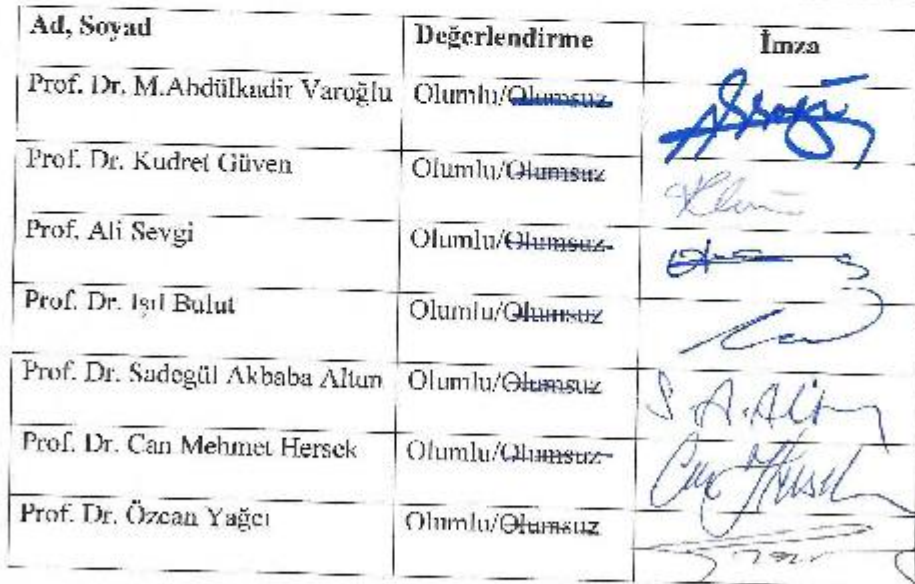 Ad, Soyad Değerlendirme İmza
Prof. Dr. M.Abdülkadir Varoğlu Olumlu/Olumsuz
Prof. Dr. Kudret Güven Olumlu/Olumsuz
Prof. Ali Sevgi Olumlu/Olumsuz
Prof. Dr. Işıl Bulut Olumlu/Olumsuz
Prof. Dr. Sadegül Akbaba Altun Olumlu/Olumsuz
Prof. Dr. Can Mehmet Hersek Olumlu/Olumsuz
Prof. Dr. Özcan Yağcı Olumlu/Olumsuz